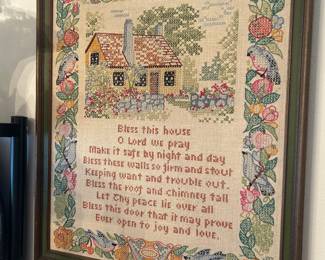 Bless this house
O Lord we pray
Make it safe by night and day
Bless these walls so firm and stout
Keeping want and trouble out.
Bless the roof and chimney tall
Let Thy peace lie over all
Bless this door that it may prove
Ever open to joy and love.